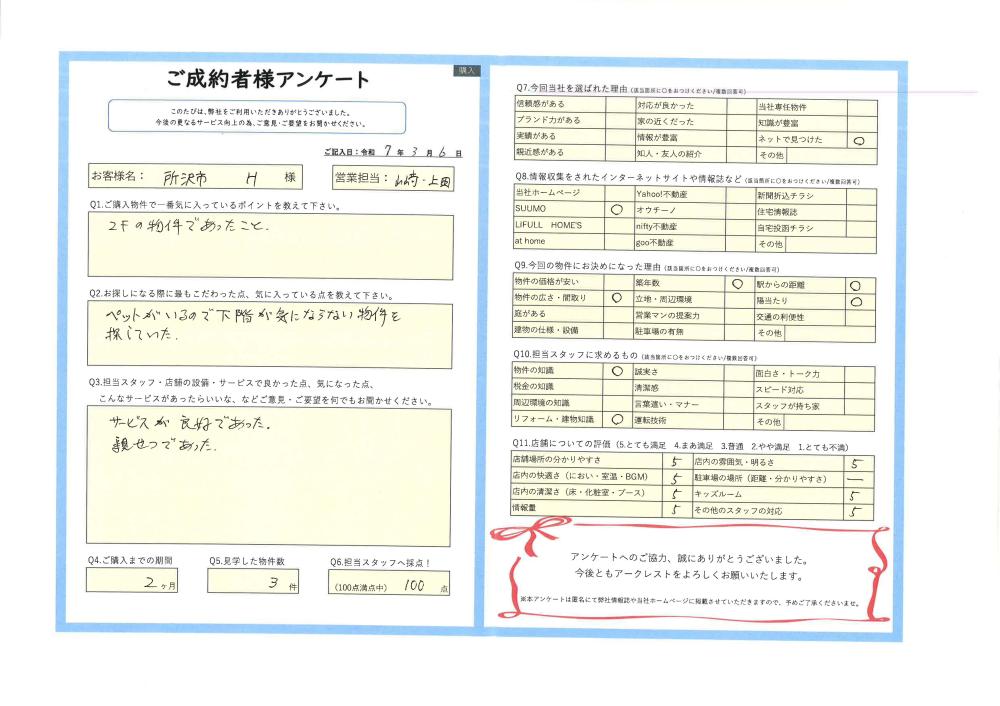 購入
ご成約者様アンケート
このたびは、弊社をご利用いただきありがとうございました。
今後の更なるサービス向上の為、ご意見・ご要望をお聞かせください。
ご記入日：令和 7 年 3 月 6 日
お客様名： 所沢市 H 様
営業担当： 山崎・上田
Q1.ご購入物件で一番気に入っているポイントを教えて下さい。
2Fの物件であったこと.
Q2.お探しになる際に最もこだわった点、気に入っている点を教えて下さい。
ペットがいるので下階が気にならない物件を
探していた.
Q3.担当スタッフ・店舗の設備・サービスで良かった点、気になった点、
こんなサービスがあったらいいな、などご意見・ご要望を何でもお聞かせください。
サービスが良好であった.
親せつであった.
Q4.ご購入までの期間
2ヶ月
Q5.見学した物件数
3 件
Q6.担当スタッフへ採点！
(100点満点中) 100 点
Q7.今回当社を選ばれた理由（該当箇所に〇をおつけください/複数回答可）
信頼感がある 対応が良かった 当社専任物件
ブランド力がある 家の近くだった 知識が豊富
実績がある 情報が豊富 ネットで見つけた ○
親近感がある 知人・友人の紹介 その他
Q8.情報収集をされたインターネットサイトや情報誌など（該当箇所に〇をおつけください/複数回答可）
当社ホームページ Yahoo!不動産 新聞折込チラシ
SUUMO ○ オウチーノ 住宅情報誌
LIFULL HOME'S nifty不動産 自宅投函チラシ
at home goo不動産 その他
Q9.今回の物件にお決めになった理由（該当箇所に〇をおつけください/複数回答可）
物件の価格が安い 築年数 ○ 駅からの距離 ○
物件の広さ・間取り ○ 立地・周辺環境 陽当たり ○
庭がある 営業マンの提案力 交通の利便性
建物の仕様・設備 駐車場の有無 その他
Q10.担当スタッフに求めるもの（該当箇所に〇をおつけください/複数回答可）
物件の知識 ○ 誠実さ 面白さ・トーク力
税金の知識 清潔感 スピード対応
周辺環境の知識 言葉遣い・マナー スタッフが持ち家
リフォーム・建物知識 ○ 運転技術 その他
Q11.店舗についての評価（5.とても満足 4.まあ満足 3.普通 2.やや満足 1.とても不満）
店舗場所の分かりやすさ 5 店内の雰囲気・明るさ 5
店内の快適さ（におい・室温・BGM） 5 駐車場の場所（距離・分かりやすさ） ―
店内の清潔さ（床・化粧室・ブース） 5 キッズルーム 5
情報量 5 その他のスタッフの対応 5
アンケートへのご協力、誠にありがとうございました。
今後ともアークレストをよろしくお願いいたします。
※本アンケートは匿名にて弊社情報誌や当社ホームページに掲載させていただきますので、予めご了承くださいませ。